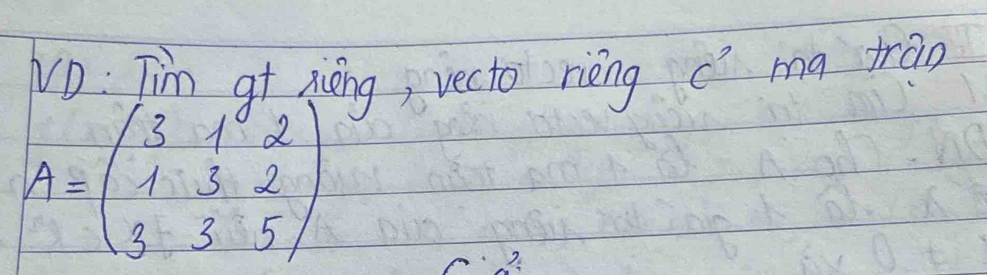 VD: Tìm gt riêng, vecto riêng c² ma trận
A = (3 1 2
1 3 2
3 3 5)